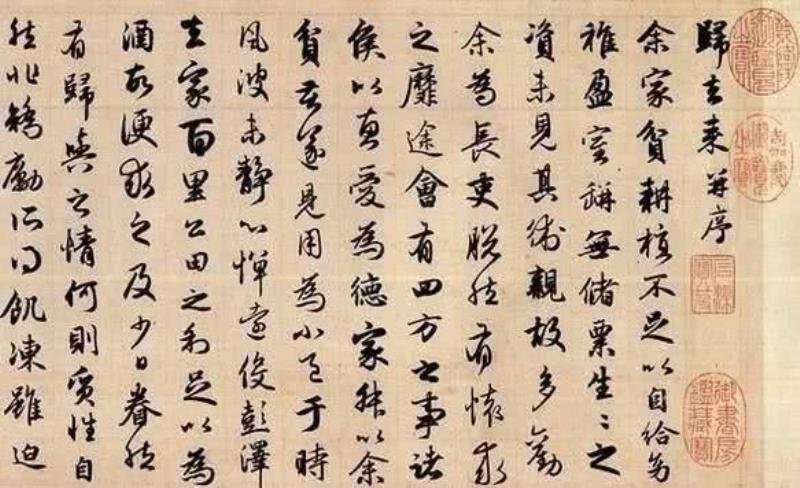 歸去来并序
余家貧耕植不足以自給幼
稚盈室缾無儲粟生〻之
資未見其術親故多勸
余為長吏脱然有懷求
之靡途會有四方之事諸
侯以惠愛為德家叔以余
貧苦遂見用為小邑于時
風波未静心憚遠役彭澤
去家百里公田之利足以為
酒故便求之及少日眷然
有歸與之情何則質性自
然非矯勵所得飢凍雖迫
乾隆御覽之寶
嘉慶御覽之寶
石渠寶笈
御書房鑑藏寶